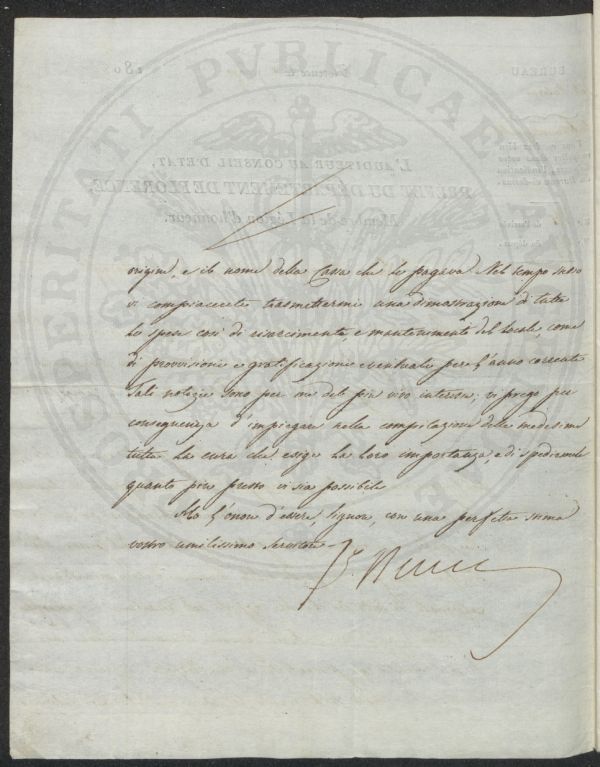 origine, e il nome della Cassa che lo pagava. Nel tempo stesso
vi compiacerete trasmettermi una dimostrazione di tutte
le spese così di risarcimento, e mantenimento del locale, come
di provvisioni e gratificazioni eventuali per l'anno corrente.
Tali notizie sono per me del più vivo interesse; vi prego per
conseguenza d'impiegare nella compilazione delle medesime
tutta la cura che esige la loro importanza, e di spedirmele
quanto più presto vi sia possibile.
Ho l'onore d'essere, Signore, con una perfetta stima
vostro umilissimo Servitore
PVBLICAE
SPERITATI
L'AUDITEUR AU CONSEIL D'ETAT,
PRÉFET DU DÉPARTEMENT DE FLORENCE,
Membre de la Légion d'honneur.
BUREAU